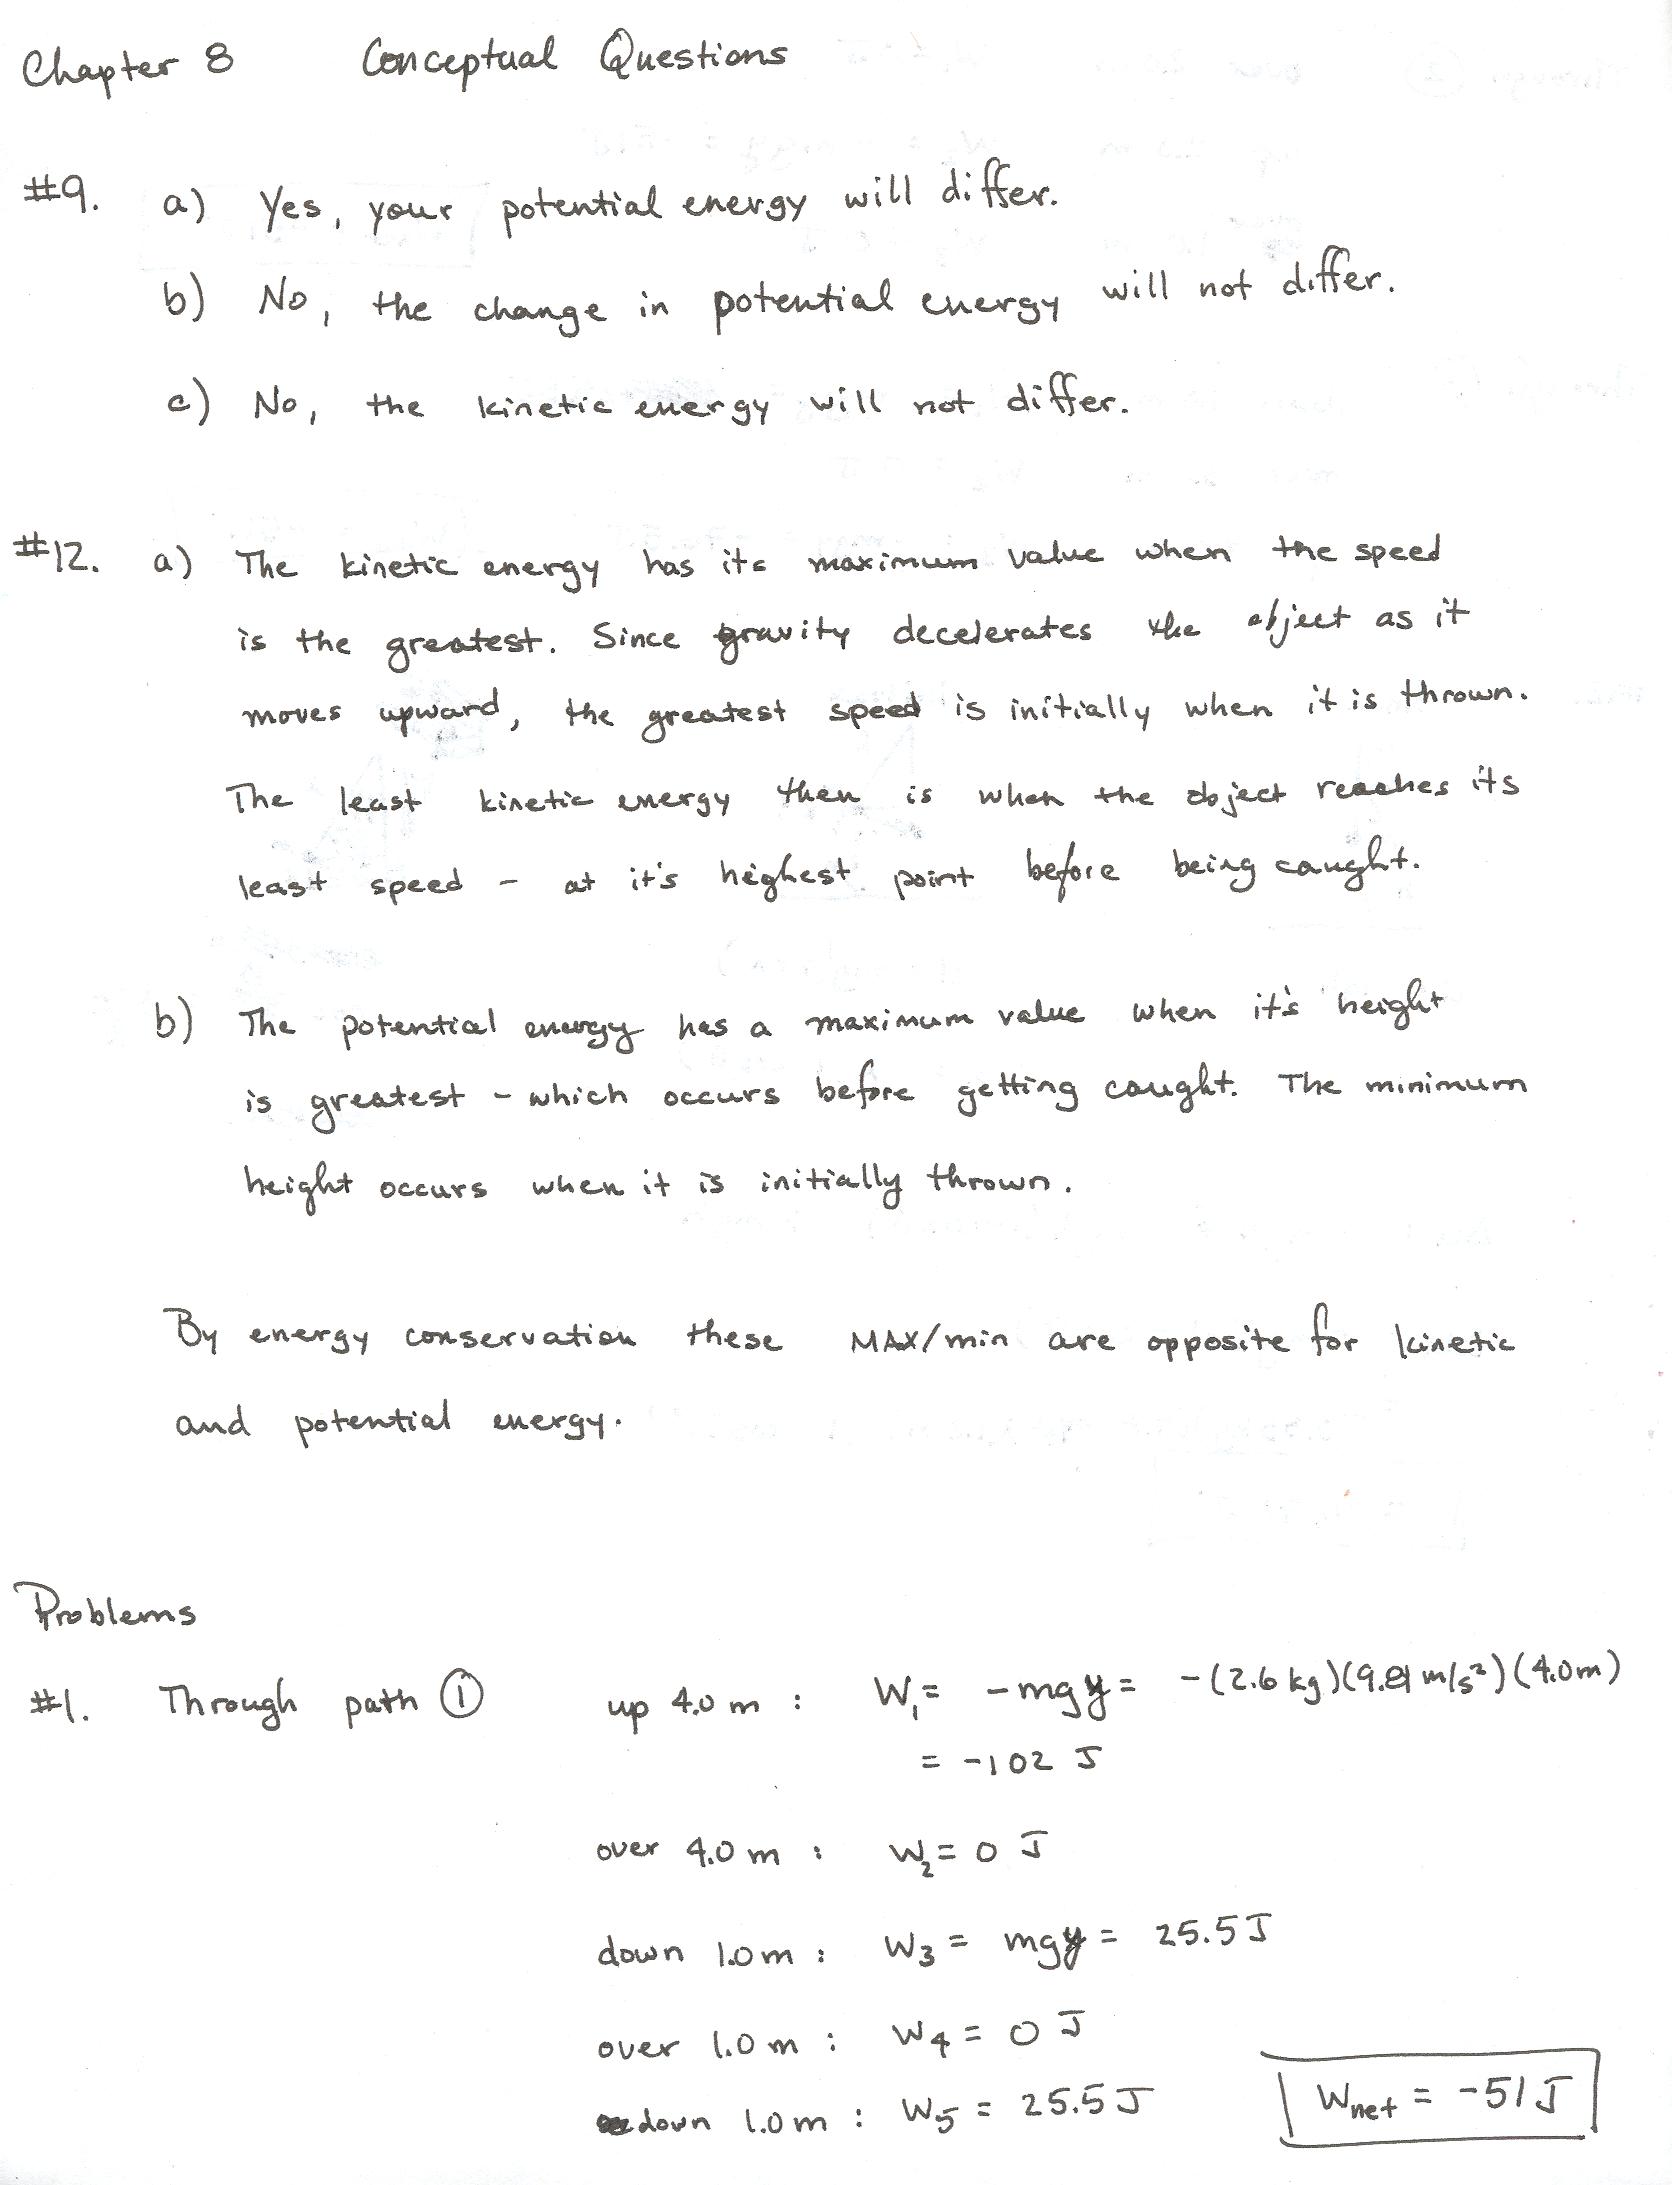 Chapter 8 Conceptual Questions
#9. a) Yes, your potential energy will differ.
b) No, the change in potential energy will not differ.
c) No, the kinetic energy will not differ.
#12. a) The kinetic energy has its maximum value when the speed
is the greatest. Since gravity decelerates the object as it
moves upward, the greatest speed is initially when it is thrown.
The least kinetic energy then is when the object reaches its
least speed - at it's highest point before being caught.
b) The potential energy has a maximum value when it's height
is greatest - which occurs before getting caught. The minimum
height occurs when it is initially thrown.
By energy conservation these MAX/min are opposite for kinetic
and potential energy.
Problems
#1. Through path ① up 4.0 m : W₁ = -mgy = -(2.6 kg)(9.81 m/s²)(4.0m)
= -102 J
over 4.0 m : W₂ = 0 J
down 1.0 m : W₃ = mgy = 25.5 J
over 1.0 m : W₄ = 0 J
down 1.0 m : W₅ = 25.5 J Wnet = -51 J